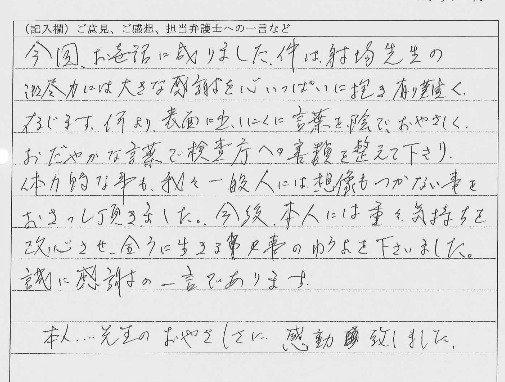 (記入欄) ご意見、ご感想、担当弁護士への一言など
今回、お世話に成りました、件は、射場先生の
御尽力には大きな感謝を心いっぱいに抱き有り難く、
存じます、何より、表面に出しにくに言葉を、陰で、おやさしく、
おだやかな言葉で検査庁への書類を整えて下さり、
体力的な事も、我々一般人には想像もつかない事を
おさっし頂きました。今後、本人には重々気持ちを
改心させ、生きる事の
誠に感謝の一言であります。
本人…先生のおやさしさに、感動致しました。